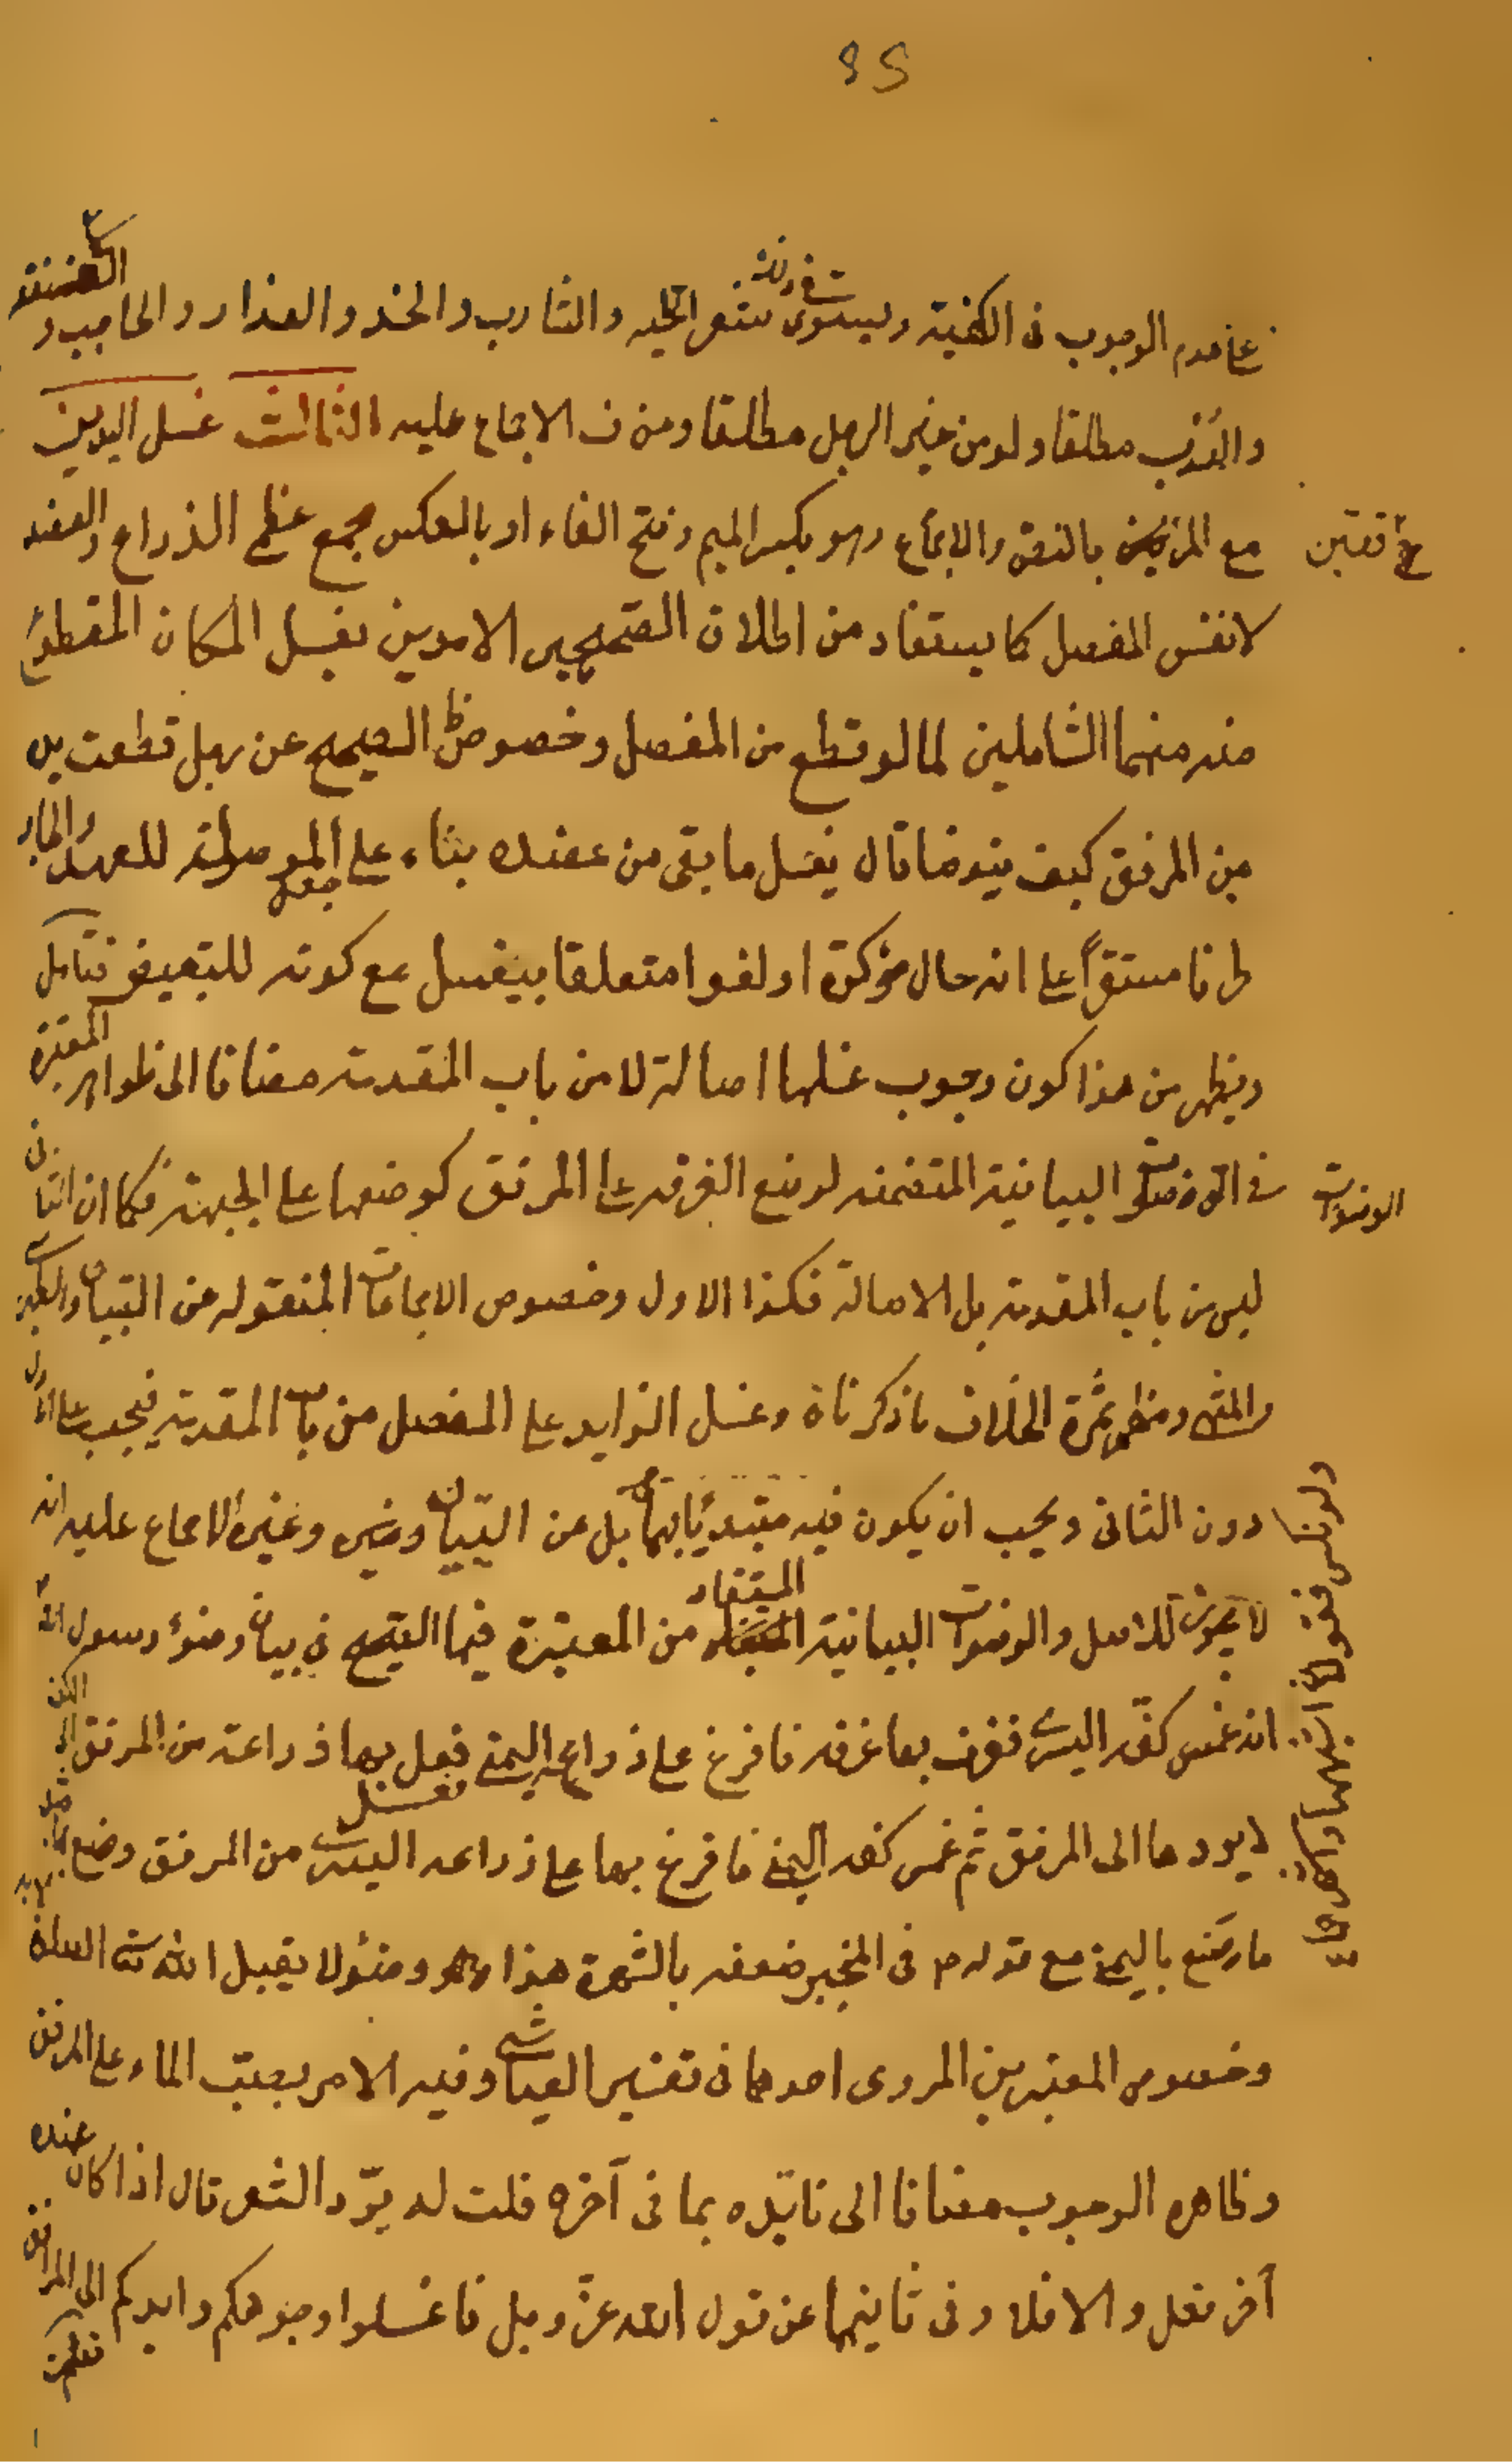 على عدم الوجوب فى الكثيفة ويستوى فى ذلك شعر اللحيه والشارب والخد والعذار والحاجب و
والهدب مطلقا ولو من غير الرجل مطلقا ومن ف الاجماع عليه الثالث غسل اليدين
مع المرفقين بالنص والاجماع وهو بكسر الميم وفتح الفاء او بالعكس مجمع عظمى الذراع والعضد
لا نفس المفصل كما يستفاد من اطلاق الصحيحين الامرين بغسل المكان المقطوع
منه منهما الشاملين لما لو قطع من المفصل وخصوص الصحيح عن رجل قطعت يده
من المرفق كيف يتوضا قال يغسل ما بقى من عضده بناء على الموصولة للعهد والجار
ظرفا مستقرا على انه حال مؤكدة او لغوا متعلقا بيغسل مع كونه للتبعيض فتامل
ويظهر من هذا كون وجوب غسلها اصالة لا من باب المقدمة مضافا الى ظواهر المعتبرة
فى الوضوات البيانية المتضمنه لوضع الغرفه على المرفق كوضعها على الجبهة فكما ان الثانى
ليس من باب المقدمة بل الاصالة فكذا الاول وخصوص الاجماعات المنقوله عن التبيان والطبرسى
والمنتهى ومنظهر ثمرة الخلاف ما ذكرناه وغسل الزايد على المفصل من باب المقدمة فيجب على الاول
دون الثانى ويجب ان يكون فيه مبتدئا بهما بل عن التبيان وغيره الاجماع عليه انه
ولو نكس فقولان اشهرهما واظهرهما انه
لا يجوز للاصل والوضوات البيانية المستفاد من المعتبرة فيها الصحيح فى بيان وضوء رسول الله
انه غمس كفه اليسرى فغرف بها غرفه فافرغ على ذراعه اليمنى فغسل بها ذراعه من المرفق الى الكف
لا يردها الى المرفق ثم غمس كفه اليمنى فافرغ بها على ذراعه اليسرى من المرفق وصنع بها مثل
ما صنع باليمنى مع قوله ص فى المنجبر ضعفه بالشهرة هذا وضوء لا يقبل الله الصلوة الا به
وخصوص المعتبرين المروى احدهما فى تفسير العياشى وفيه الامر بصب الماء على المرفق
وظاهره الوجوب مضافا الى تايّده بما فى آخره قلت له يردّ الشعر قال اذا كان عنده
آخر فعل والا فلا وفى ثانيهما عن قول الله عزّ وجل فاغسلوا وجوهكم وايديكم الى المرافق
فقلت